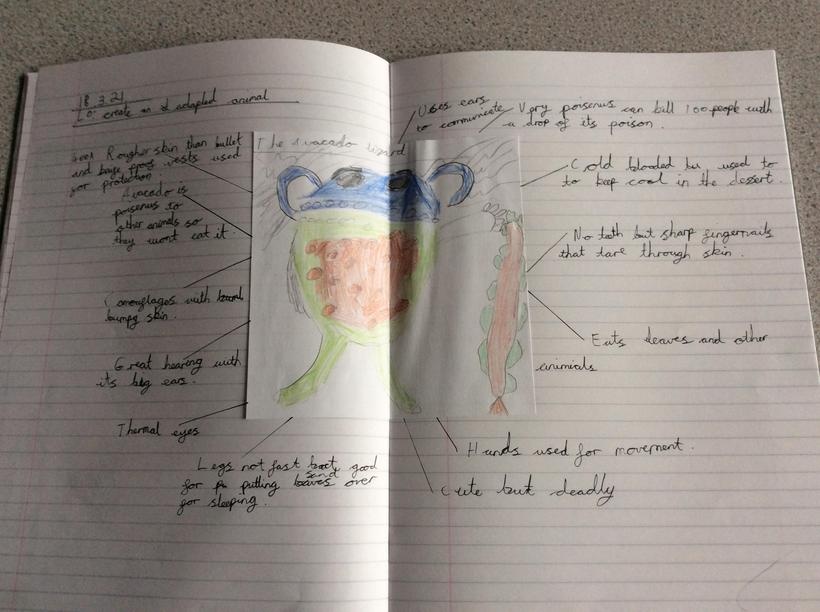 18.3.21
Lo: create an adapted animal
The Avacado lizard
Rougher skin than bullet
and proof vests used
for protection
Avacado is
poisenus to
other animals so
they wont eat it.
Camouflages with
bumpy skin.
Great hearing with
its big ears.
Thermal eyes
Legs not fast but good
for putting sand over
for sleeping.
Uses ears
to communicate
Very poisenus can kill 100 people with
a drop of its poison.
Cold blooded but used to
to keep cool in the dessert.
No teeth but sharp fingernails
that tare through skin.
Eats leaves and other
animials
Hands used for movement.
Cute but deadly